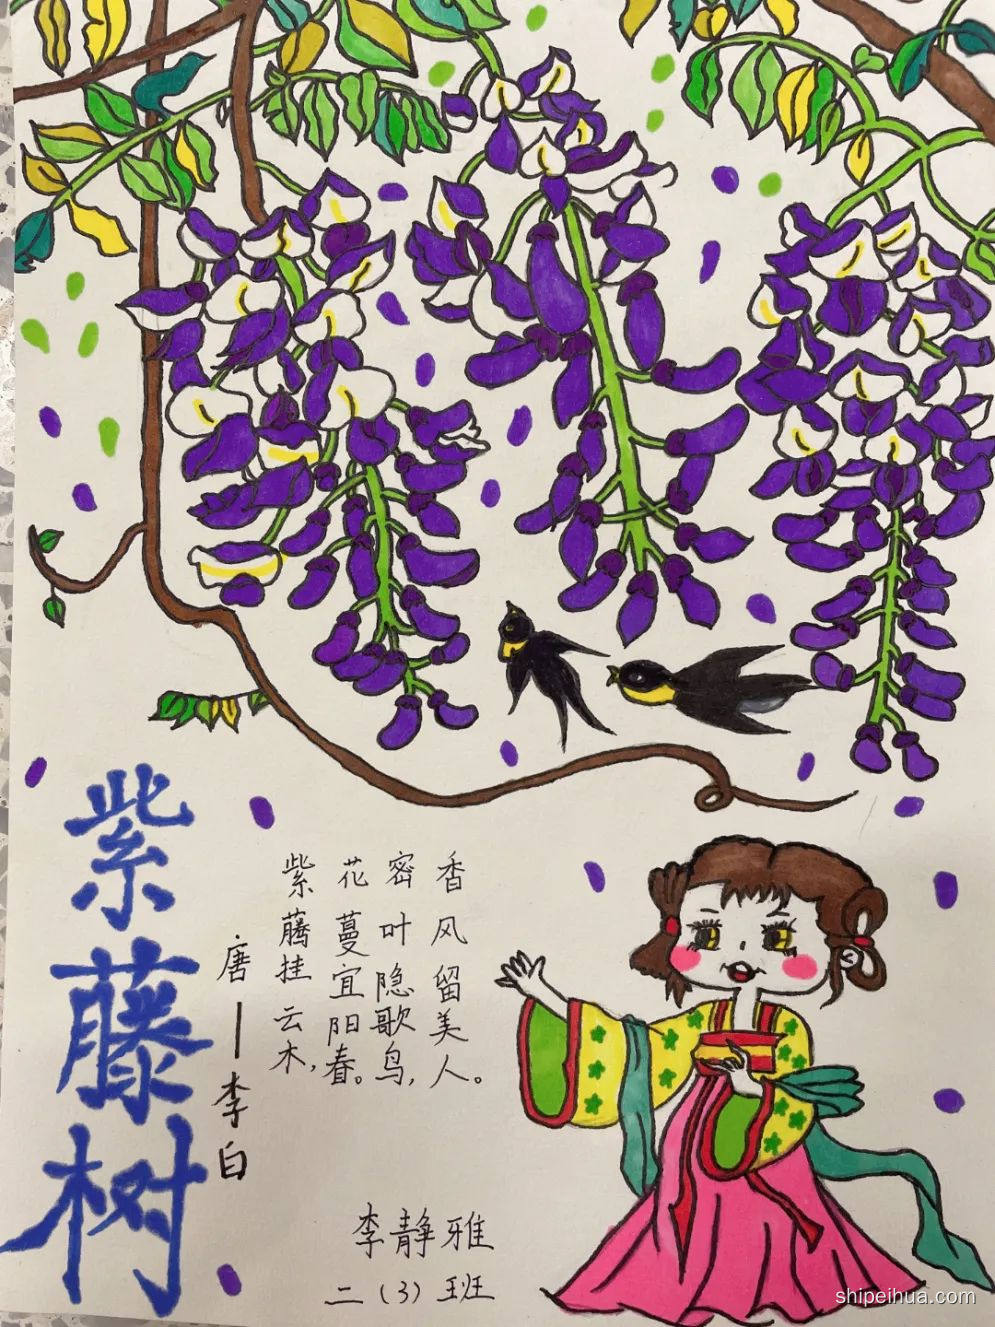 紫藤树
唐—李白
紫藤挂云木，
花蔓宜阳春。
密叶隐歌鸟，
香风留美人。
李静雅
二（3）班
shipeihua.com